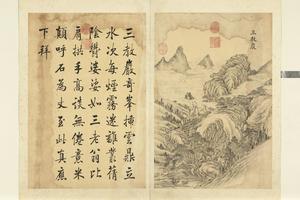 三教巖
三教巖奇峯雲鼎立
水次每煙霧迷離叢蒨
陰婆娑如三老翁比
肩拱手高談無倦意米
顛呼石為丈至此真應
下拜